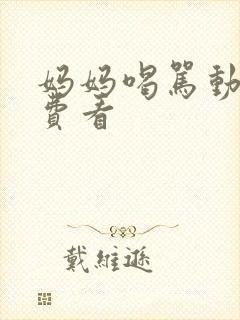 妈妈喝骂動
費看
戴維遜